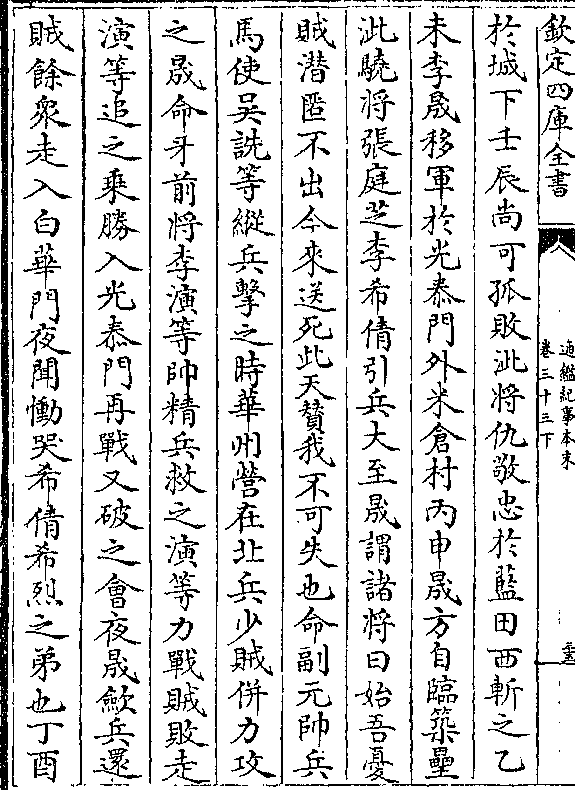 欽定四庫全書
通鑑紀事本末
卷三十三下
於城下壬辰尚可孤敗泚將仇敬忠於藍田西斬之乙
未李晟移軍於光泰門外米倉村丙申晟方自臨築壘
泚驍將張庭芝李希倩引兵大至晟謂諸將曰始吾憂
賊潜匿不出今來送死此天贊我不可失也命副元帥兵
馬使吴詵等縱兵擊之時華州營在北兵少賊併力攻
之晟命牙前將李演等帥精兵救之演等力戰賊敗走
演等追之乘勝入光泰門再戰又破之會夜晟歛兵還
賊餘衆走入白華門夜聞慟哭希倩希烈之弟也丁酉